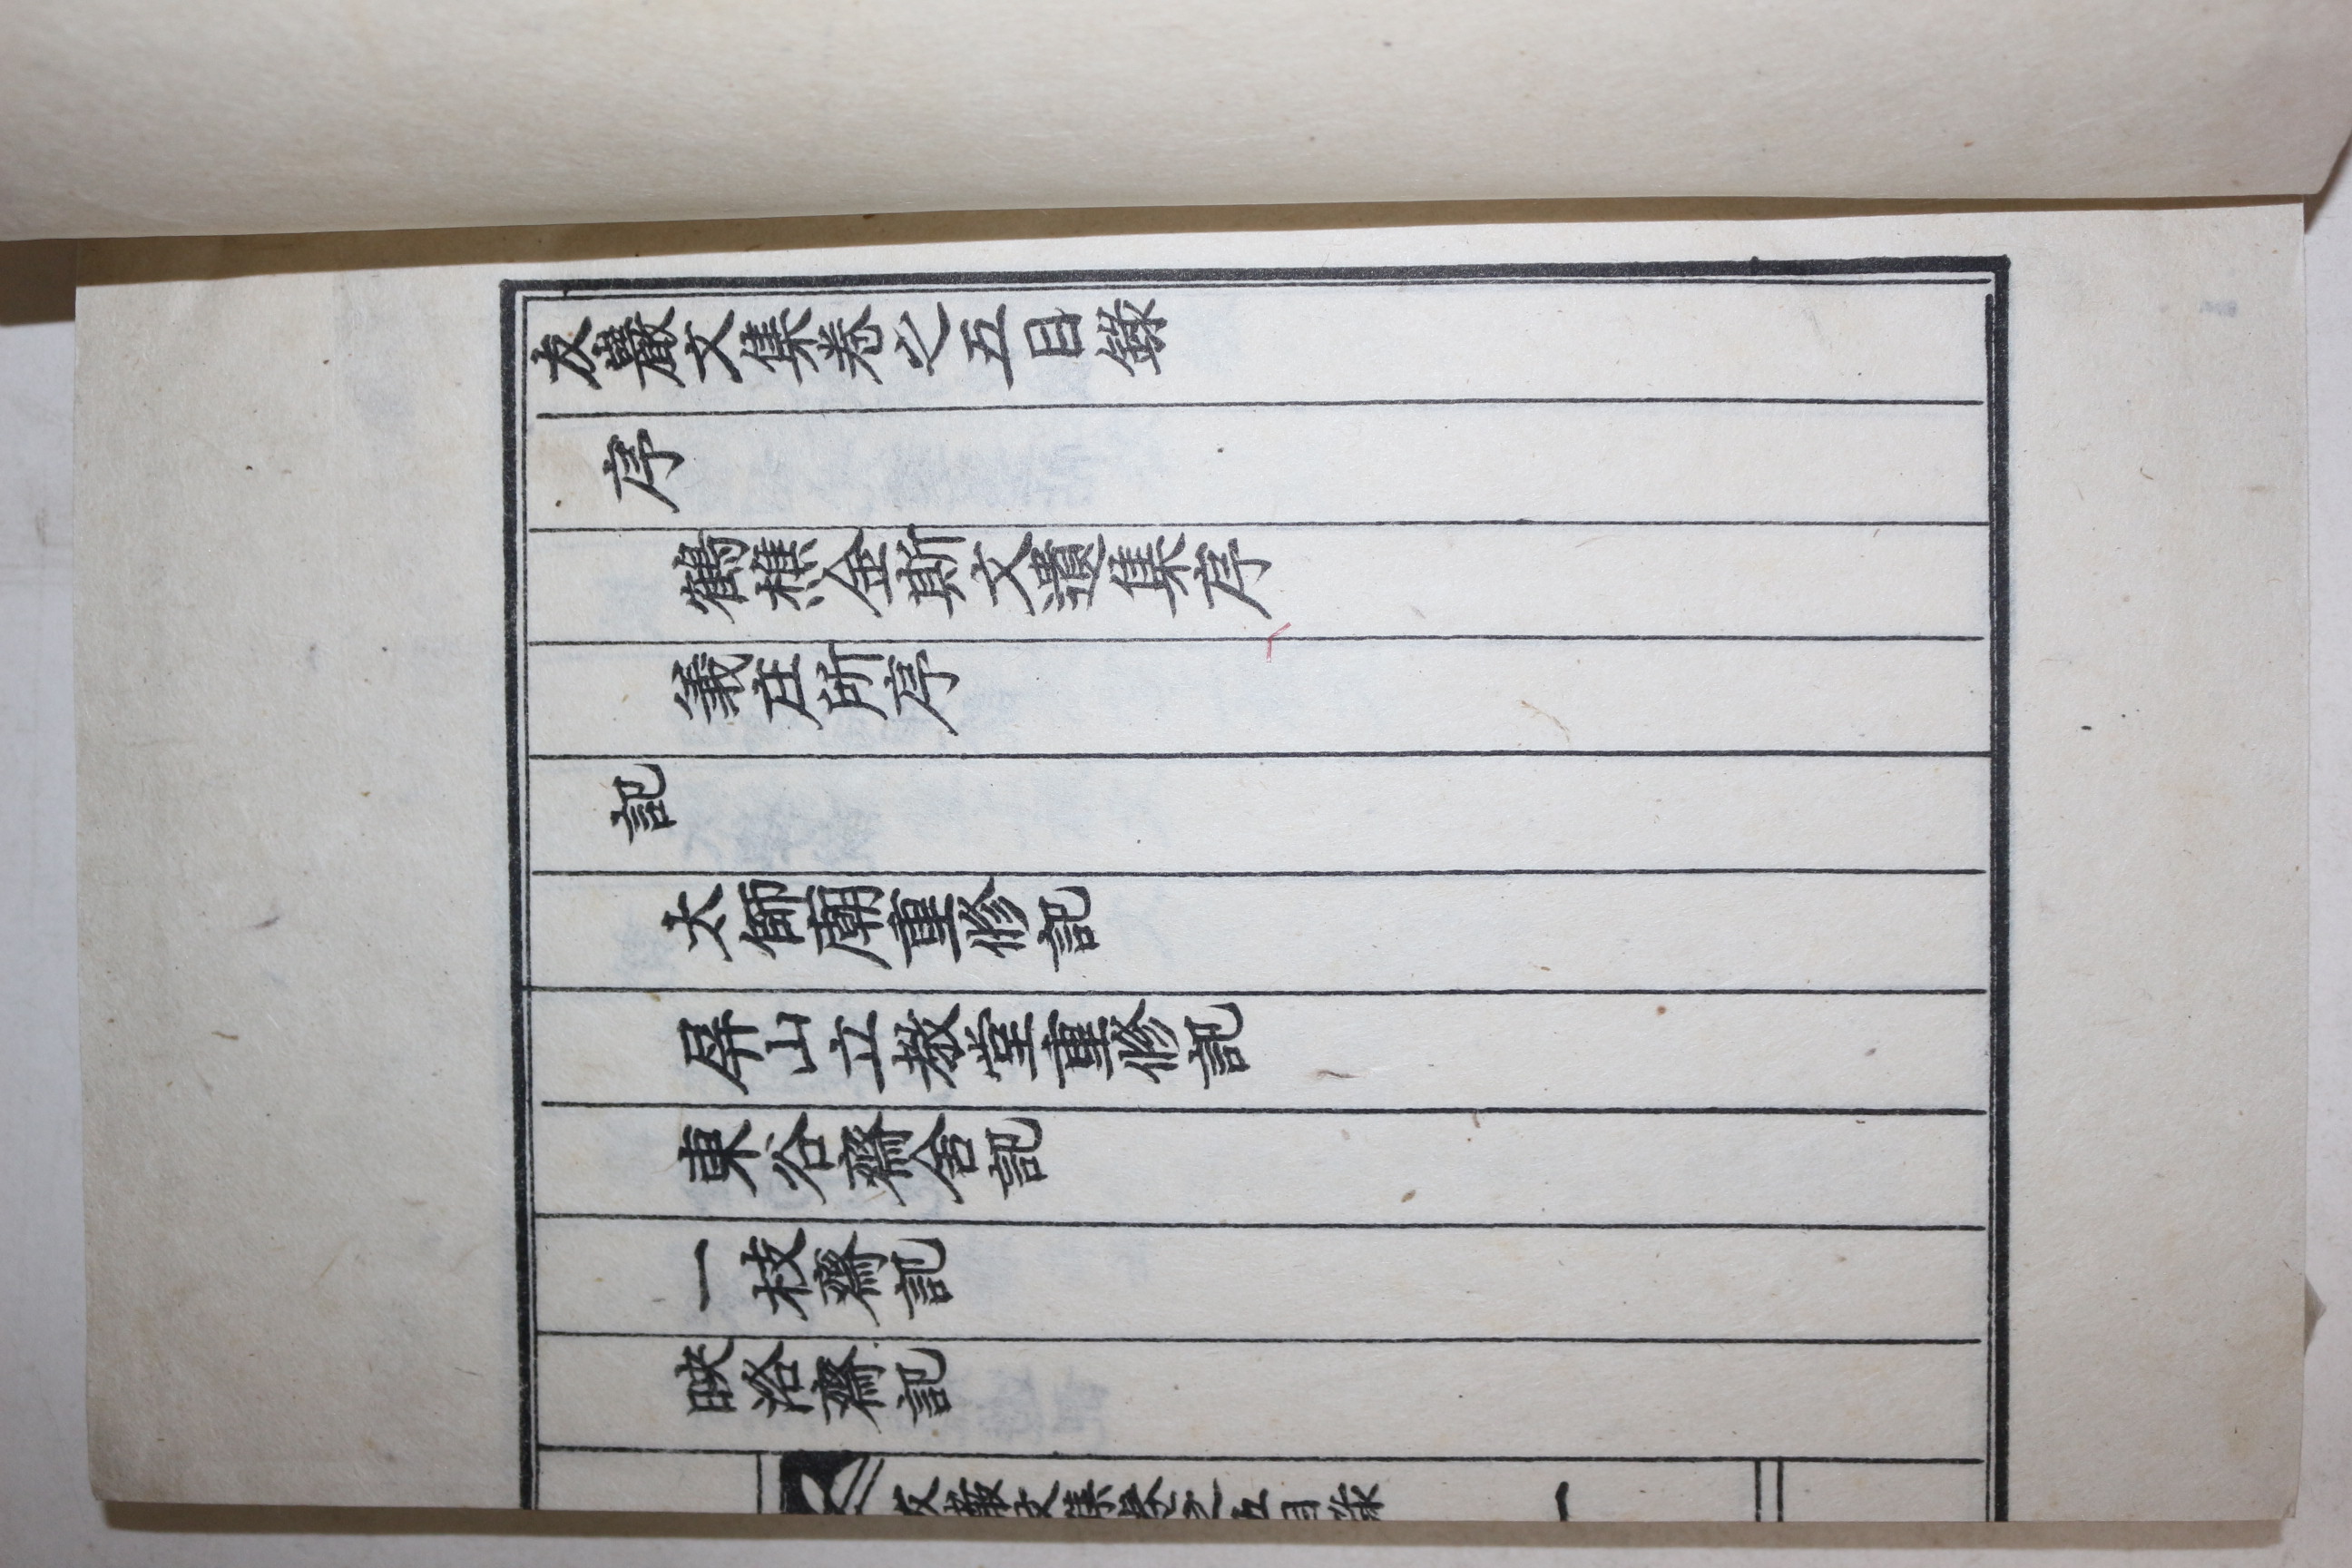 友巖文集卷之五目錄
序
鶴樵金斯文遺集序
義庄所序
記
太師廟重修記
屛山立敎堂重修記
東谷齋舍記
一枝齋記
映洛齋記
友巖文集卷之五目錄 一